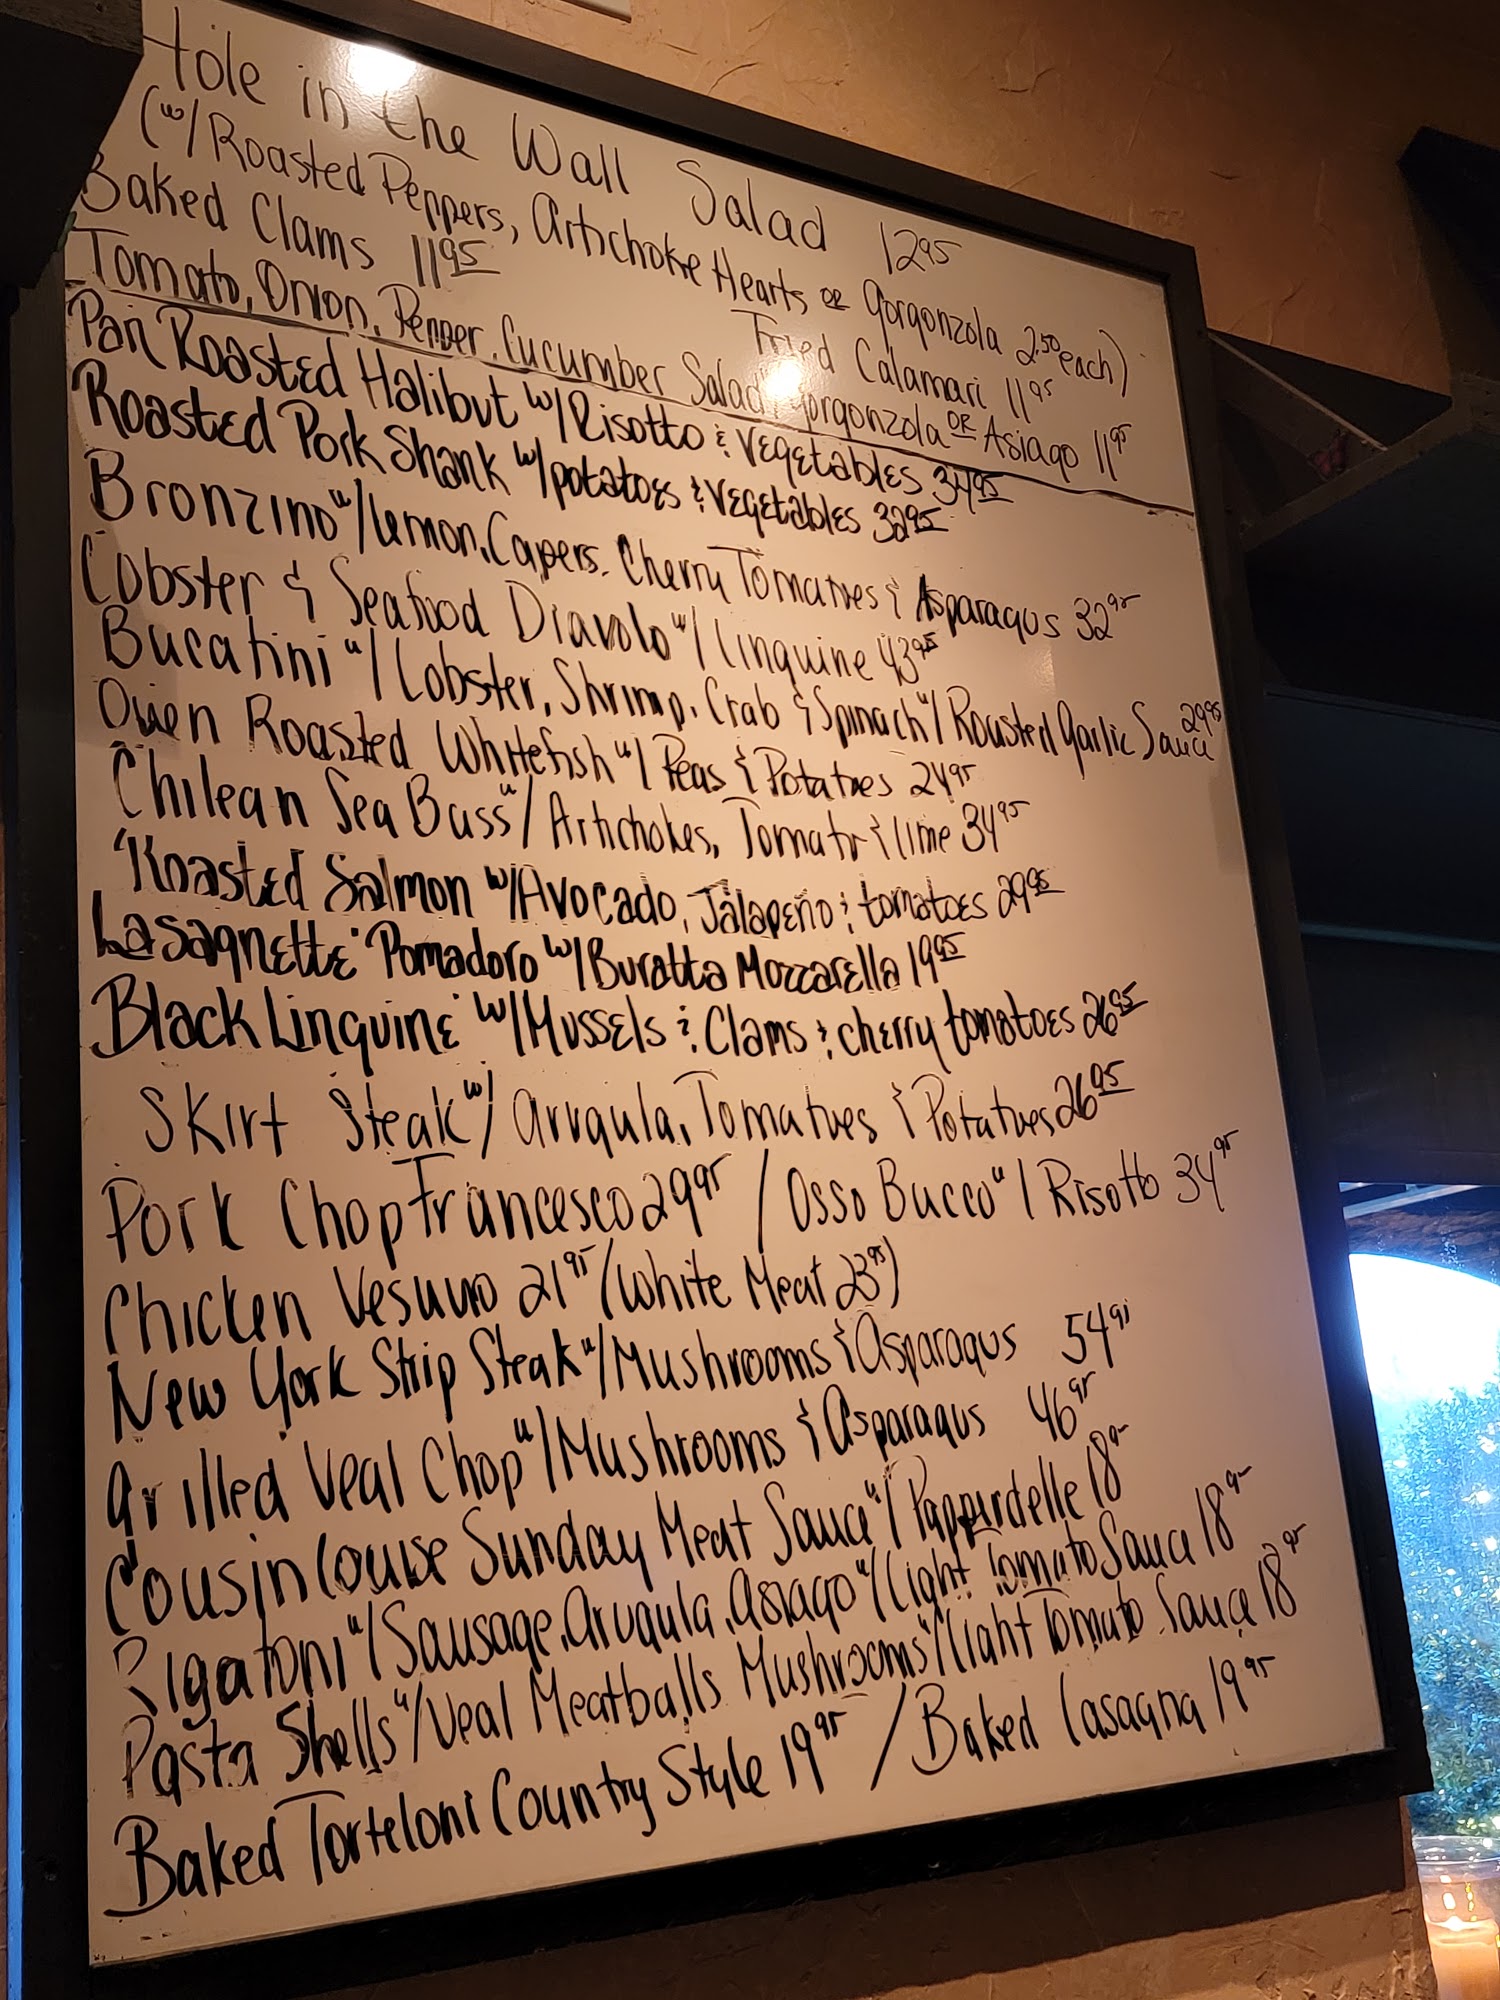 Hole in the Wall Salad 12.95
(w/Roasted Peppers, Artichoke Hearts or Gorgonzola 2.50 each)
Baked Clams 11.95 Fried Calamari 11.95
Tomato, Onion, Pepper, Cucumber Salad, Gorgonzola or Asiago 11.95
Pan Roasted Halibut w/Risotto & Vegetables 34.95
Roasted Pork Shank w/potatoes & vegetables 32.95
Bronzino w/Lemon, Capers, Cherry Tomatoes & Asparagus 32.95
Lobster & Seafood Diavolo w/Linguine 43.95
Bucatini w/Lobster, Shrimp, Crab & Spinach w/Roasted Garlic Sauce 29.95
Oven Roasted Whitefish w/Peas & Potatoes 24.95
Chilean Sea Bass w/Artichokes, Tomato & Lime 34.95
Roasted Salmon w/Avocado, Jalapeño & tomatoes 29.95
"Lasagnette" Pomadoro w/Buratta Mozzarella 19.95
Black Linguine w/Mussels & Clams & cherry tomatoes 26.95
Skirt Steak w/Arugula, Tomatoes & Potatoes 26.95
Pork Chop Francesco 29.95 / Osso Bucco w/Risotto 34.95
Chicken Vesuvio 21.95 (White Meat 23.95)
New York Strip Steak w/Mushrooms & Asparagus 54.95
Grilled Veal Chop w/Mushrooms & Asparagus 46.95
Cousin Louise Sunday Meat Sauce w/Pappardelle 18.95
Rigatoni w/Sausage, Arugula, Asiago w/Light Tomato Sauce 18.95
Pasta Shells w/Veal Meatballs Mushrooms w/Light Tomato Sauce 18.95
Baked Torteloni Country Style 19.95 / Baked Lasagna 19.95